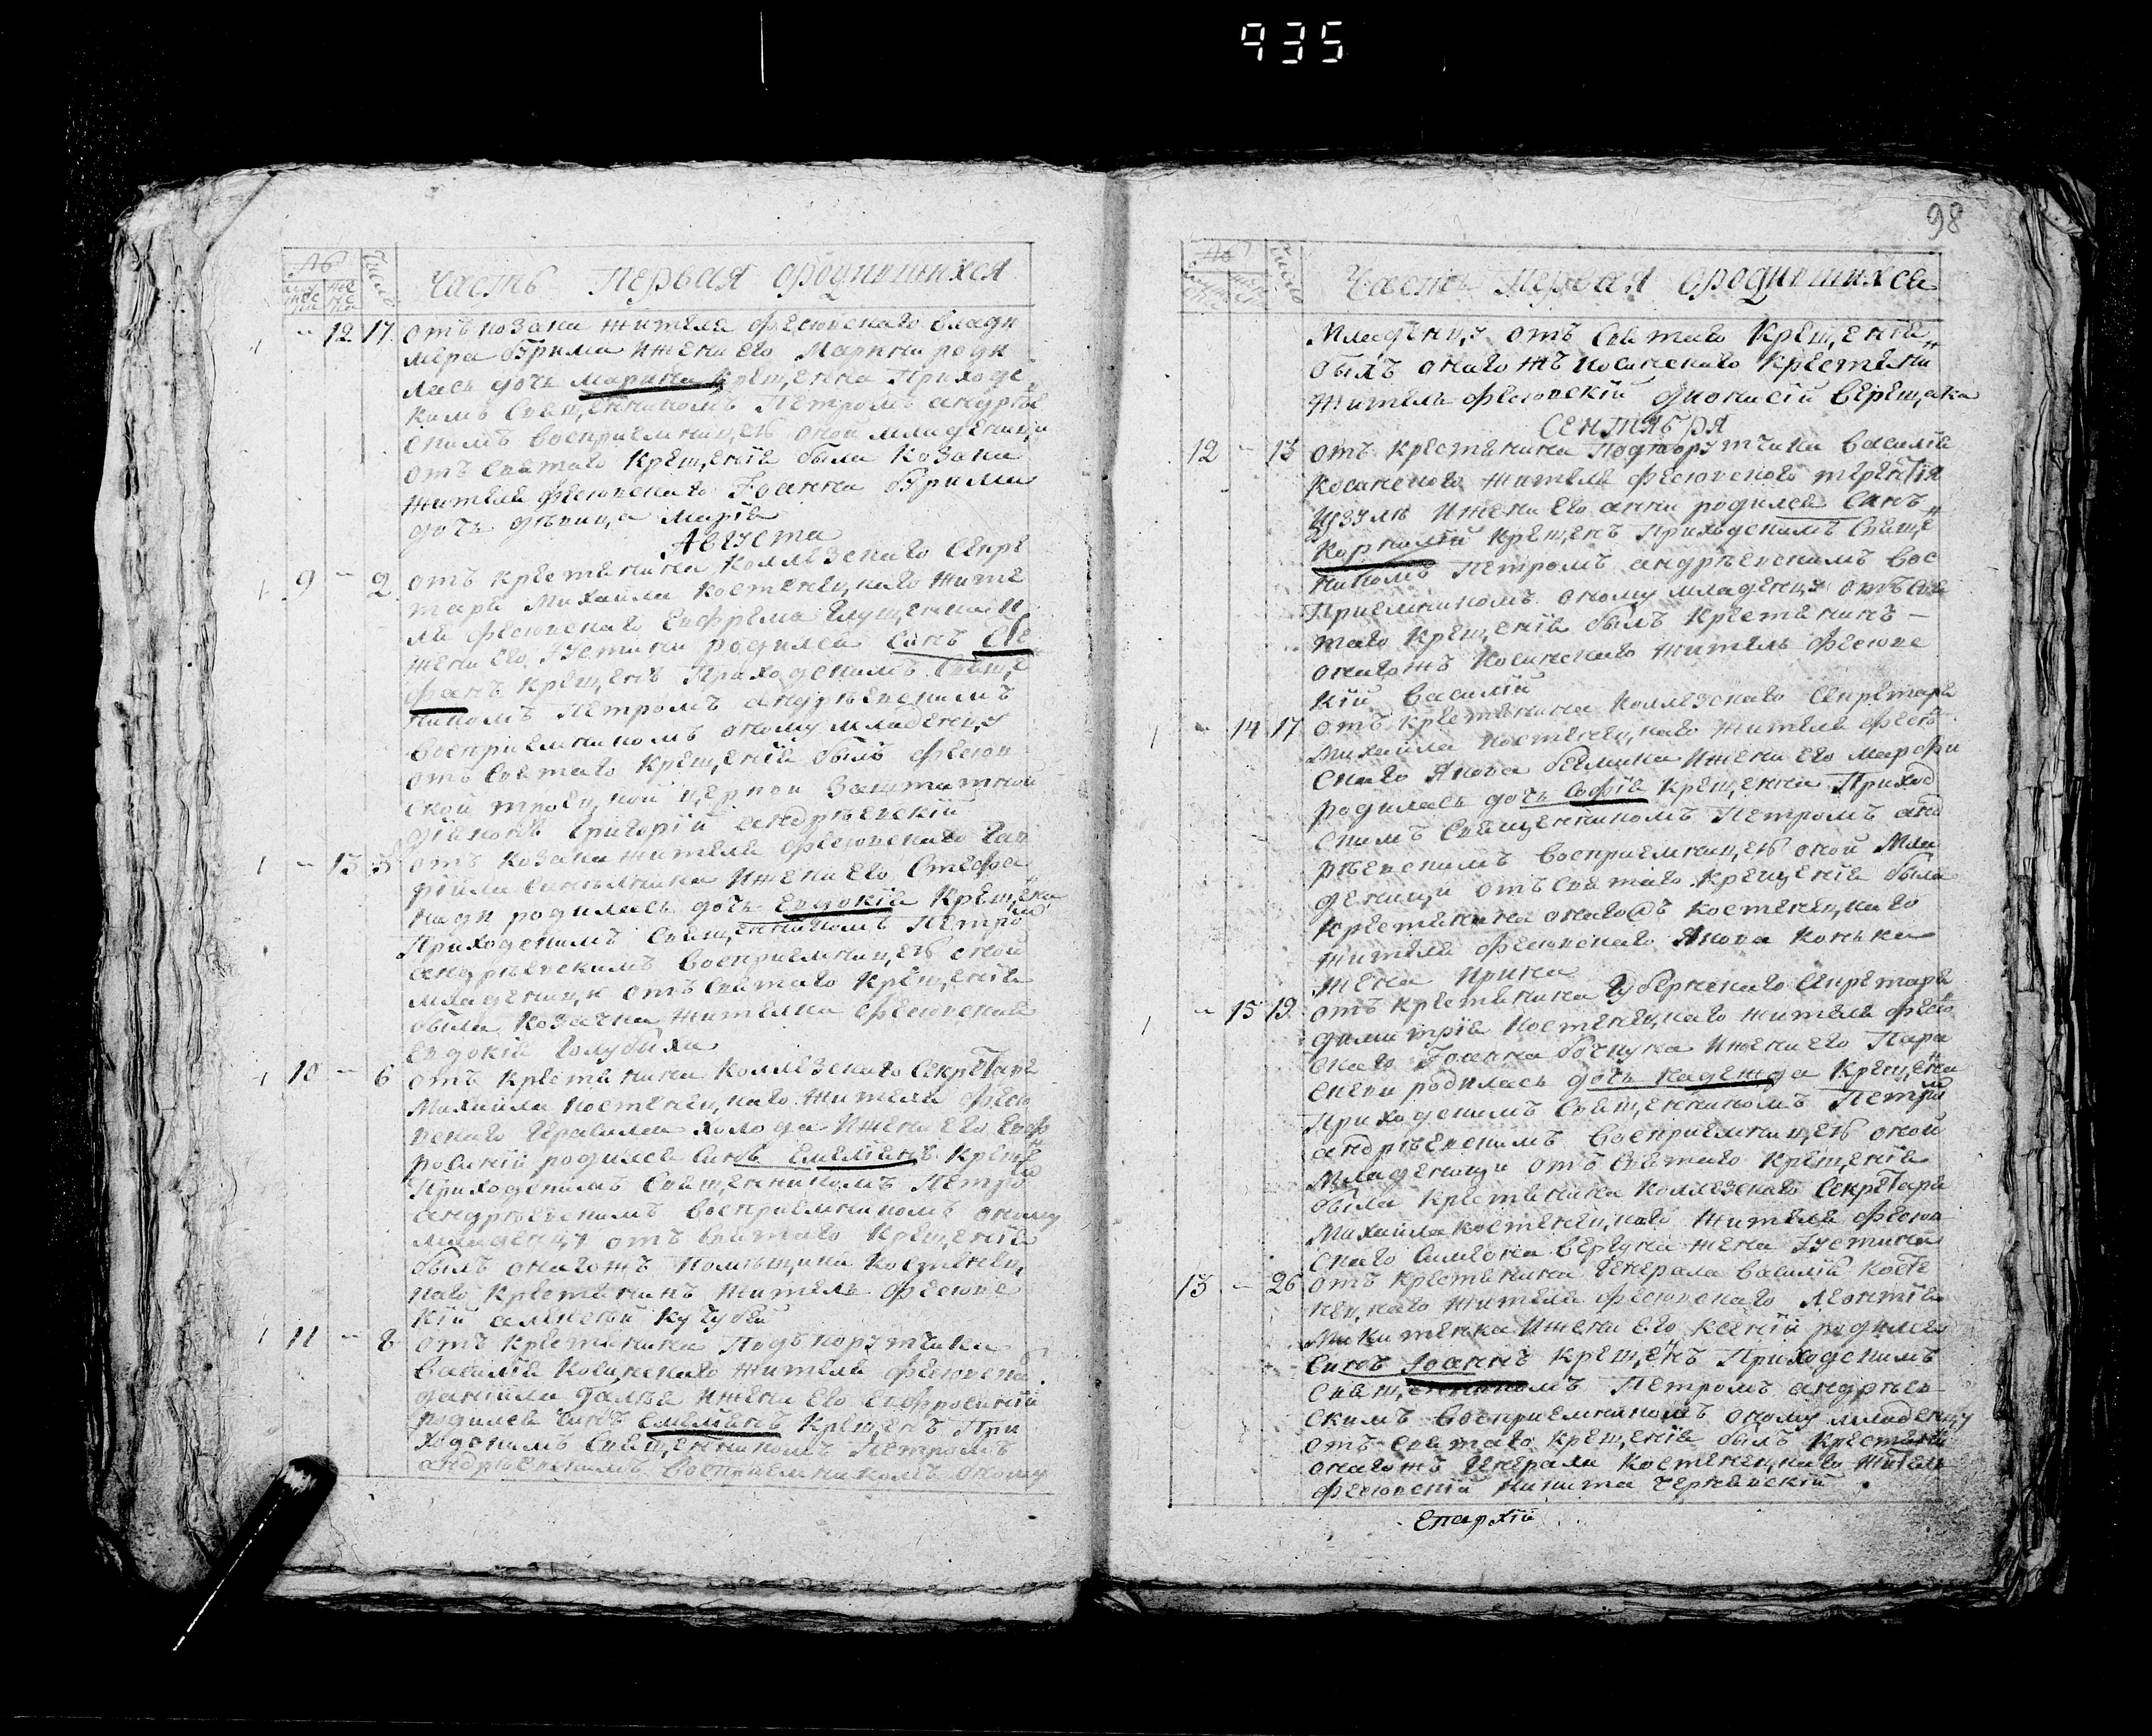 935
98
№
Число
Часть Первая ородившихся
12 17 отъ козака жителя фесювскаго влади
мера Ӱрима ижени его Марини роди
лась дочь Марина крещенна Приходс
кимъ Священникомъ Петромъ андрѣе
скимъ восприемницею оной младеници
отъ святаго крещенія была козака
жителя фесювскаго Іоанна Ӱрима
дочь дѣвица Марія
Августа
9 2 отъ крестянина коллезскаго секре
таря Михайла костенецкаго жите
ля фесювскаго Евфрема Глущенка и
жени его Іустини родился синъ Сте
фанъ крещенъ Приходскимъ Свяще
никомъ Петромъ андрѣевскимъ
восприемникомъ оному младенцу
отъ святаго крещенія былъ фесюв
ской троецкой церкви заштатной
діяконъ Григорій андрѣевскій
13 3 отъ козака жителя фесювскаго Гав
рійла ижени его Стефа
ниди родилась дочь Евдокія крещена
Приходскимъ Священникомъ Петро
андрѣевскимъ восприемницею оной
младеници отъ святаго крещенія
была козачка жителка фесювская
Евдокія Голубиха
10 6 отъ крестянина коллезскаго секретаря
Михайла костенецкаго жителя фесю
вскаго Герасима холода ижени его Евф
росиніи родился синъ Емеліянъ креще
Приходскимъ Священникомъ Петро
андрѣевскимъ восприемникомъ оному
младенцу отъ святаго крещенія
былъ онагожъ Помѣщика костенец
каго крестянинъ житель фесювс
кій алексѣй кучубѣй
11 8 отъ крестянина Подъпорутчика
василія косинскаго жителя фесювска
данійла ижени его Евфросиніи
родился синъ Емелянъ крещенъ При
ходскимъ Священникомъ Петромъ
андрѣевскимъ восприемникомъ оному
№
Число
Часть Первая ородившихся
младенцу отъ святаго крещенія
былъ онагожъ косинскаго крестяни
житель фесювскій дионисій верещака
СЕНТЯБРЯ
12 13 отъ крестянина Подпорутчика василія
косинского жителя фесювского терентія
ижени его анни родился синъ
Корнилій крещенъ Приходскимъ Свяще
никомъ Петромъ андрѣевскимъ вос
приемникомъ оному младенцу отъ свя
таго крещенія былъ крестянинъ
онагожъ косинскаго житель фесювс
кій василій
14 17 отъ крестянина коллезскаго секретаря
Михайла костенецкаго жителя фесю
скаго Якова ижени его марфи
родилась дочь Софія крещенна Приход
скимъ Священникомъ Петромъ анд
рѣевскимъ восприемницею оной мла
деници отъ святаго крещенія была
крестянина онагожъ костенецкаго
жителя фесювскаго Якова конька
жена Ирина
15 19 отъ крестянина Губернскаго секретаря
димитрія костенецкаго жителя фесю
скаго Іоанна ижени его Пара
скеви родилась дочь надежда крещена
Приходскимъ Священникомъ Петро
андрѣевскимъ восприемницею оной
младеници отъ святаго крещенія
была крестянина коллезскаго секретаря
Михайла костенецкаго жителя фесюв
скаго Симеона вергуна жена Іустина
13 26 отъ крестянина Генерала василія косте
нецкаго жителя фесювскаго Леонтія
Микитенка ижени его ксеніи родился
синъ Іоаннъ крещенъ Приходскимъ
священникомъ Петромъ андрѣев
скимъ восприемникомъ оному младенцу
отъ святаго крещенія былъ крестяни
онагожъ Генерала костенецкаго жител
фесювскій Никита Чернявскій
Епархіи